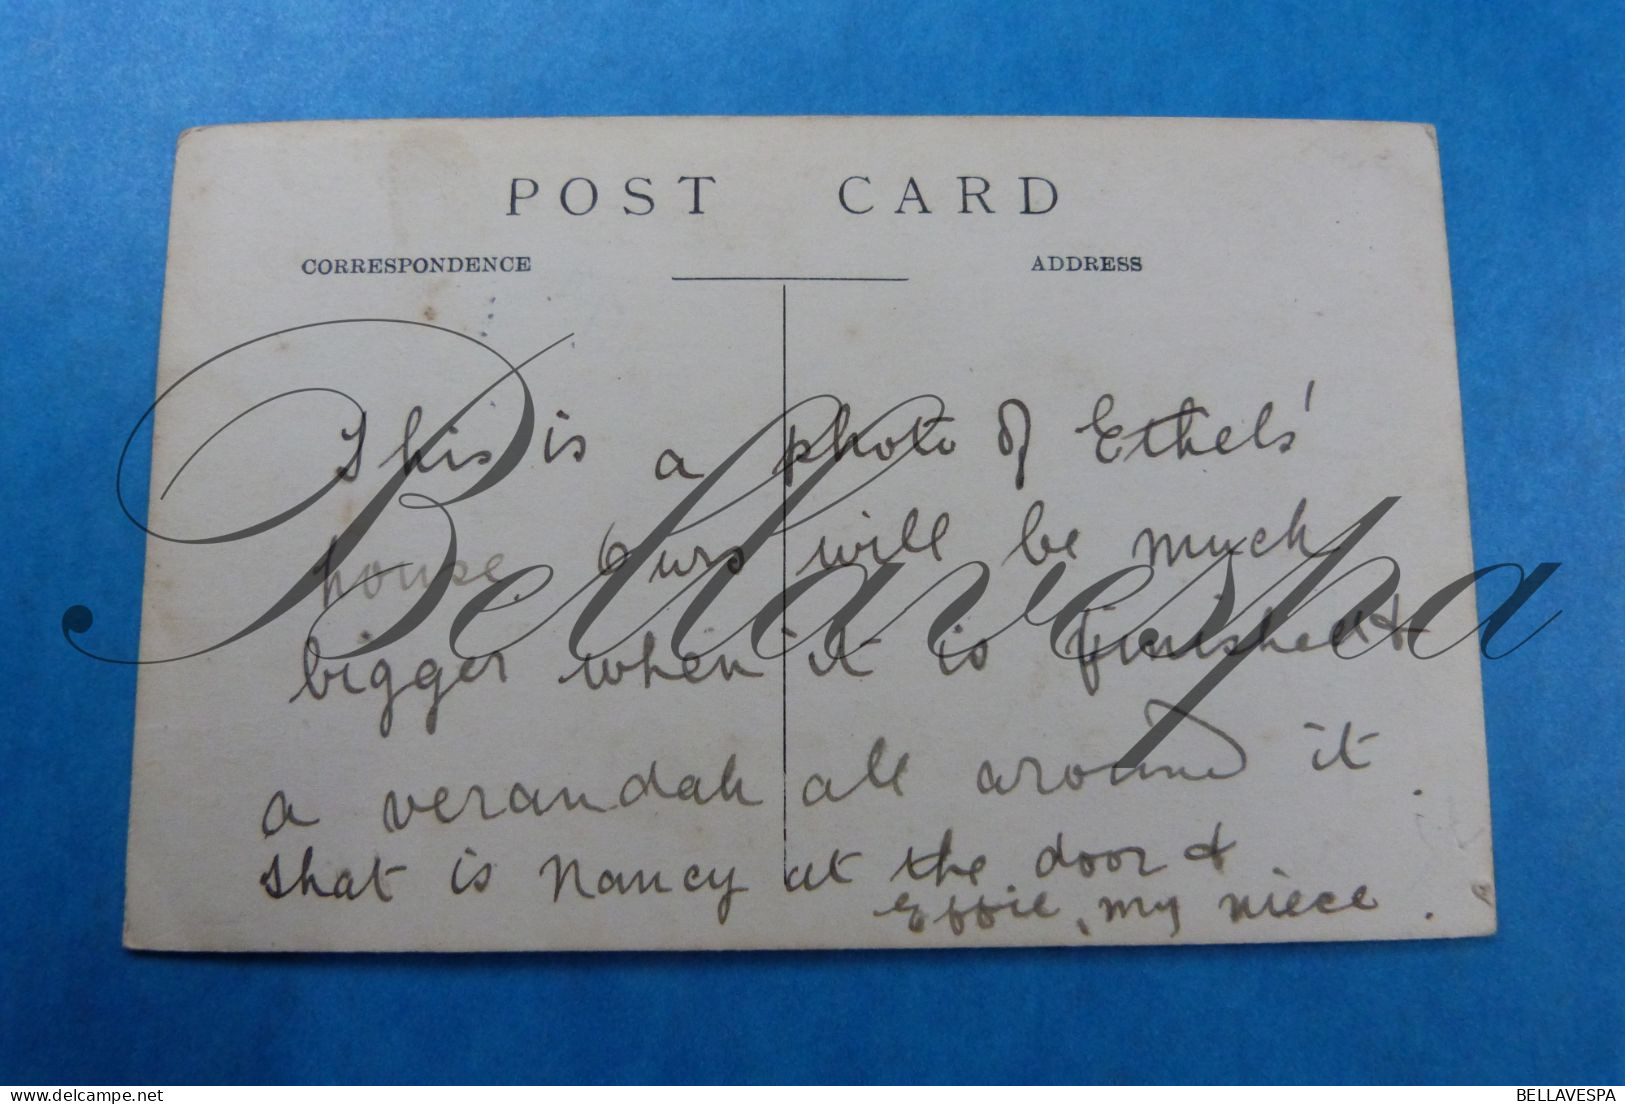 POST CARD
CORRESPONDENCE
ADDRESS
This is a photo of Ethels'
house. Ours will be much
bigger when it is finished &
a verandah all around it.
that is Nancy at the door &
Effie, my niece.
Bellavespa
BELLAVESPA